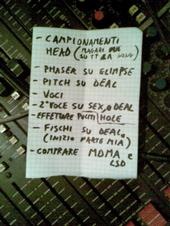 - CAMPIONAMENTI
HEAD (MAGARI DUE
- PHASER SU GLIMPSE
- PITCH SU DEAL
- VOCI
- 2ª VOCE SU SEX, DEAL
- EFFETTARE HOLE
- FISCHI SU DEAL
(INIZIO PARTE MIA)
- COMPRARE MDMA e
LSD